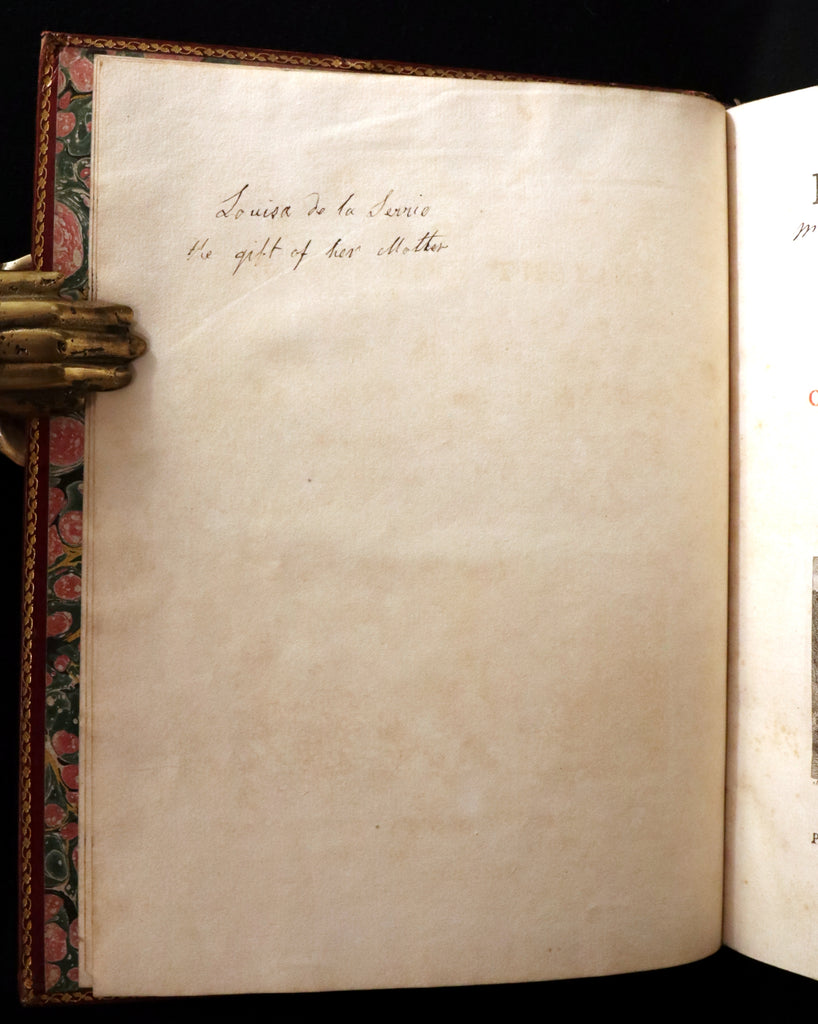 Louisa de la Serrie
the gift of her Mother